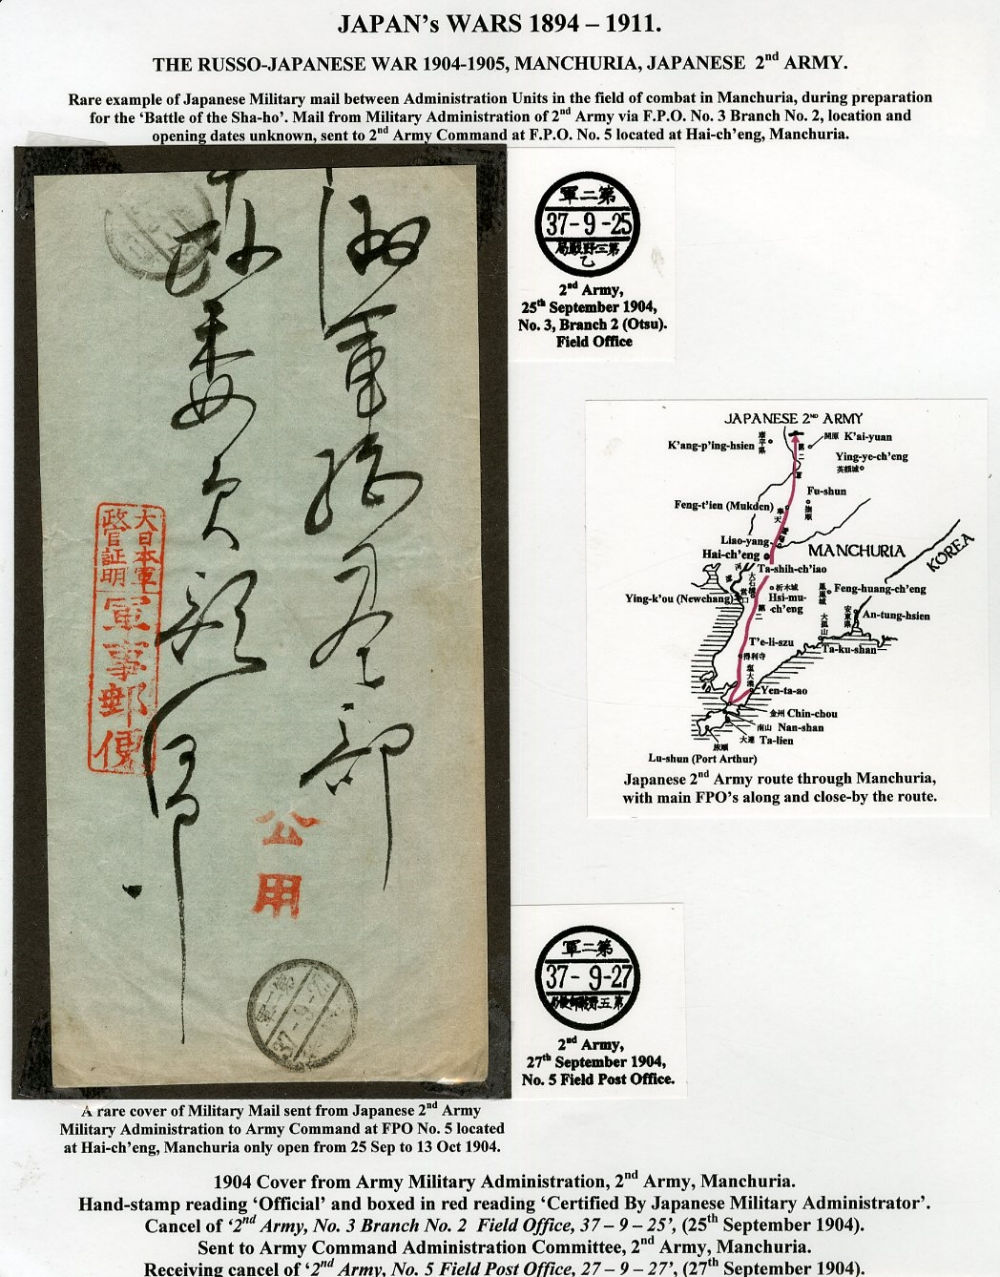 JAPAN's WARS 1894 – 1911.
THE RUSSO-JAPANESE WAR 1904-1905, MANCHURIA, JAPANESE 2nd ARMY.
Rare example of Japanese Military mail between Administration Units in the field of combat in Manchuria, during preparation
for the ‘Battle of the Sha-ho’. Mail from Military Administration of 2nd Army via F.P.O. No. 3 Branch No. 2, location and
opening dates unknown, sent to 2nd Army Command at F.P.O. No. 5 located at Hai-ch'eng, Manchuria.
軍
部
委員
大日本軍
政官証明
軍事郵便
公用
37-9-2
第二軍
37-9-25
第三野戦局
乙
2nd Army,
25th September 1904,
No. 3, Branch 2 (Otsu).
Field Office
JAPANESE 2ND ARMY
K'ang-p'ing-hsien
康平県
開原 K'ai-yuan
Ying-ye-ch'eng
英額城
第二軍
Fu-shun
撫順
Feng-t'ien (Mukden)
奉天
Liao-yang
Hai-ch'eng
MANCHURIA
KOREA
Ta-shih-ch'iao
大石橋
Ying-k'ou (Newchang)
営口
析木城
Hsi-mu-
ch'eng
第二
鳳凰城
Feng-huang-ch'eng
安東県
An-tung-hsien
大孤山
Ta-ku-shan
T'e-li-szu
得利寺
塩大澳
Yen-ta-ao
金州 Chin-chou
南山 Nan-shan
大連 Ta-lien
旅順
Lu-shun (Port Arthur)
Japanese 2nd Army route through Manchuria,
with main FPO's along and close-by the route.
第二軍
37-9-27
第五野戦郵便局
2nd Army,
27th September 1904,
No. 5 Field Post Office.
A rare cover of Military Mail sent from Japanese 2nd Army
Military Administration to Army Command at FPO No. 5 located
at Hai-ch'eng, Manchuria only open from 25 Sep to 13 Oct 1904.
1904 Cover from Army Military Administration, 2nd Army, Manchuria.
Hand-stamp reading ‘Official’ and boxed in red reading ‘Certified By Japanese Military Administrator’.
Cancel of ‘2nd Army, No. 3 Branch No. 2 Field Office, 37 – 9 – 25’, (25th September 1904).
Sent to Army Command Administration Committee, 2nd Army, Manchuria.
Receiving cancel of ‘2nd Army, No. 5 Field Post Office, 27 – 9 – 27’, (27th September 1904).